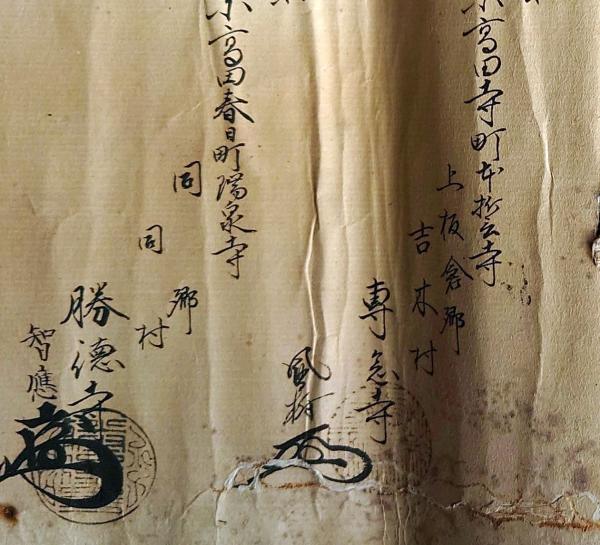 高田寺町本誓寺
上板倉郷
吉木村
専念寺
高田春日町瑞泉寺
同 郷
同 村
勝德寺
智應